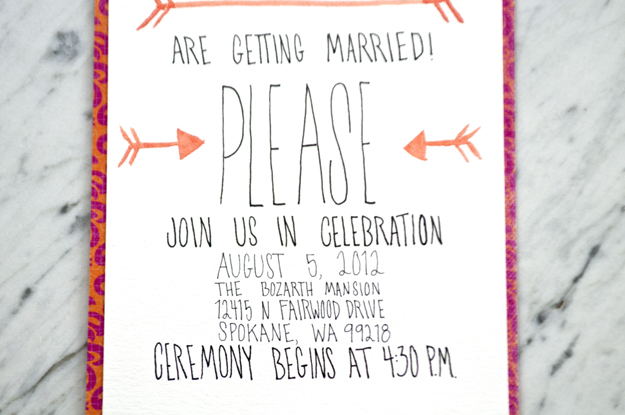 ARE GETTING MARRIED!
PLEASE
JOIN US IN CELEBRATION
AUGUST 5, 2012
THE BOZARTH MANSION
12415 N FAIRWOOD DRIVE
SPOKANE, WA 99218
CEREMONY BEGINS AT 4:30 P.M.